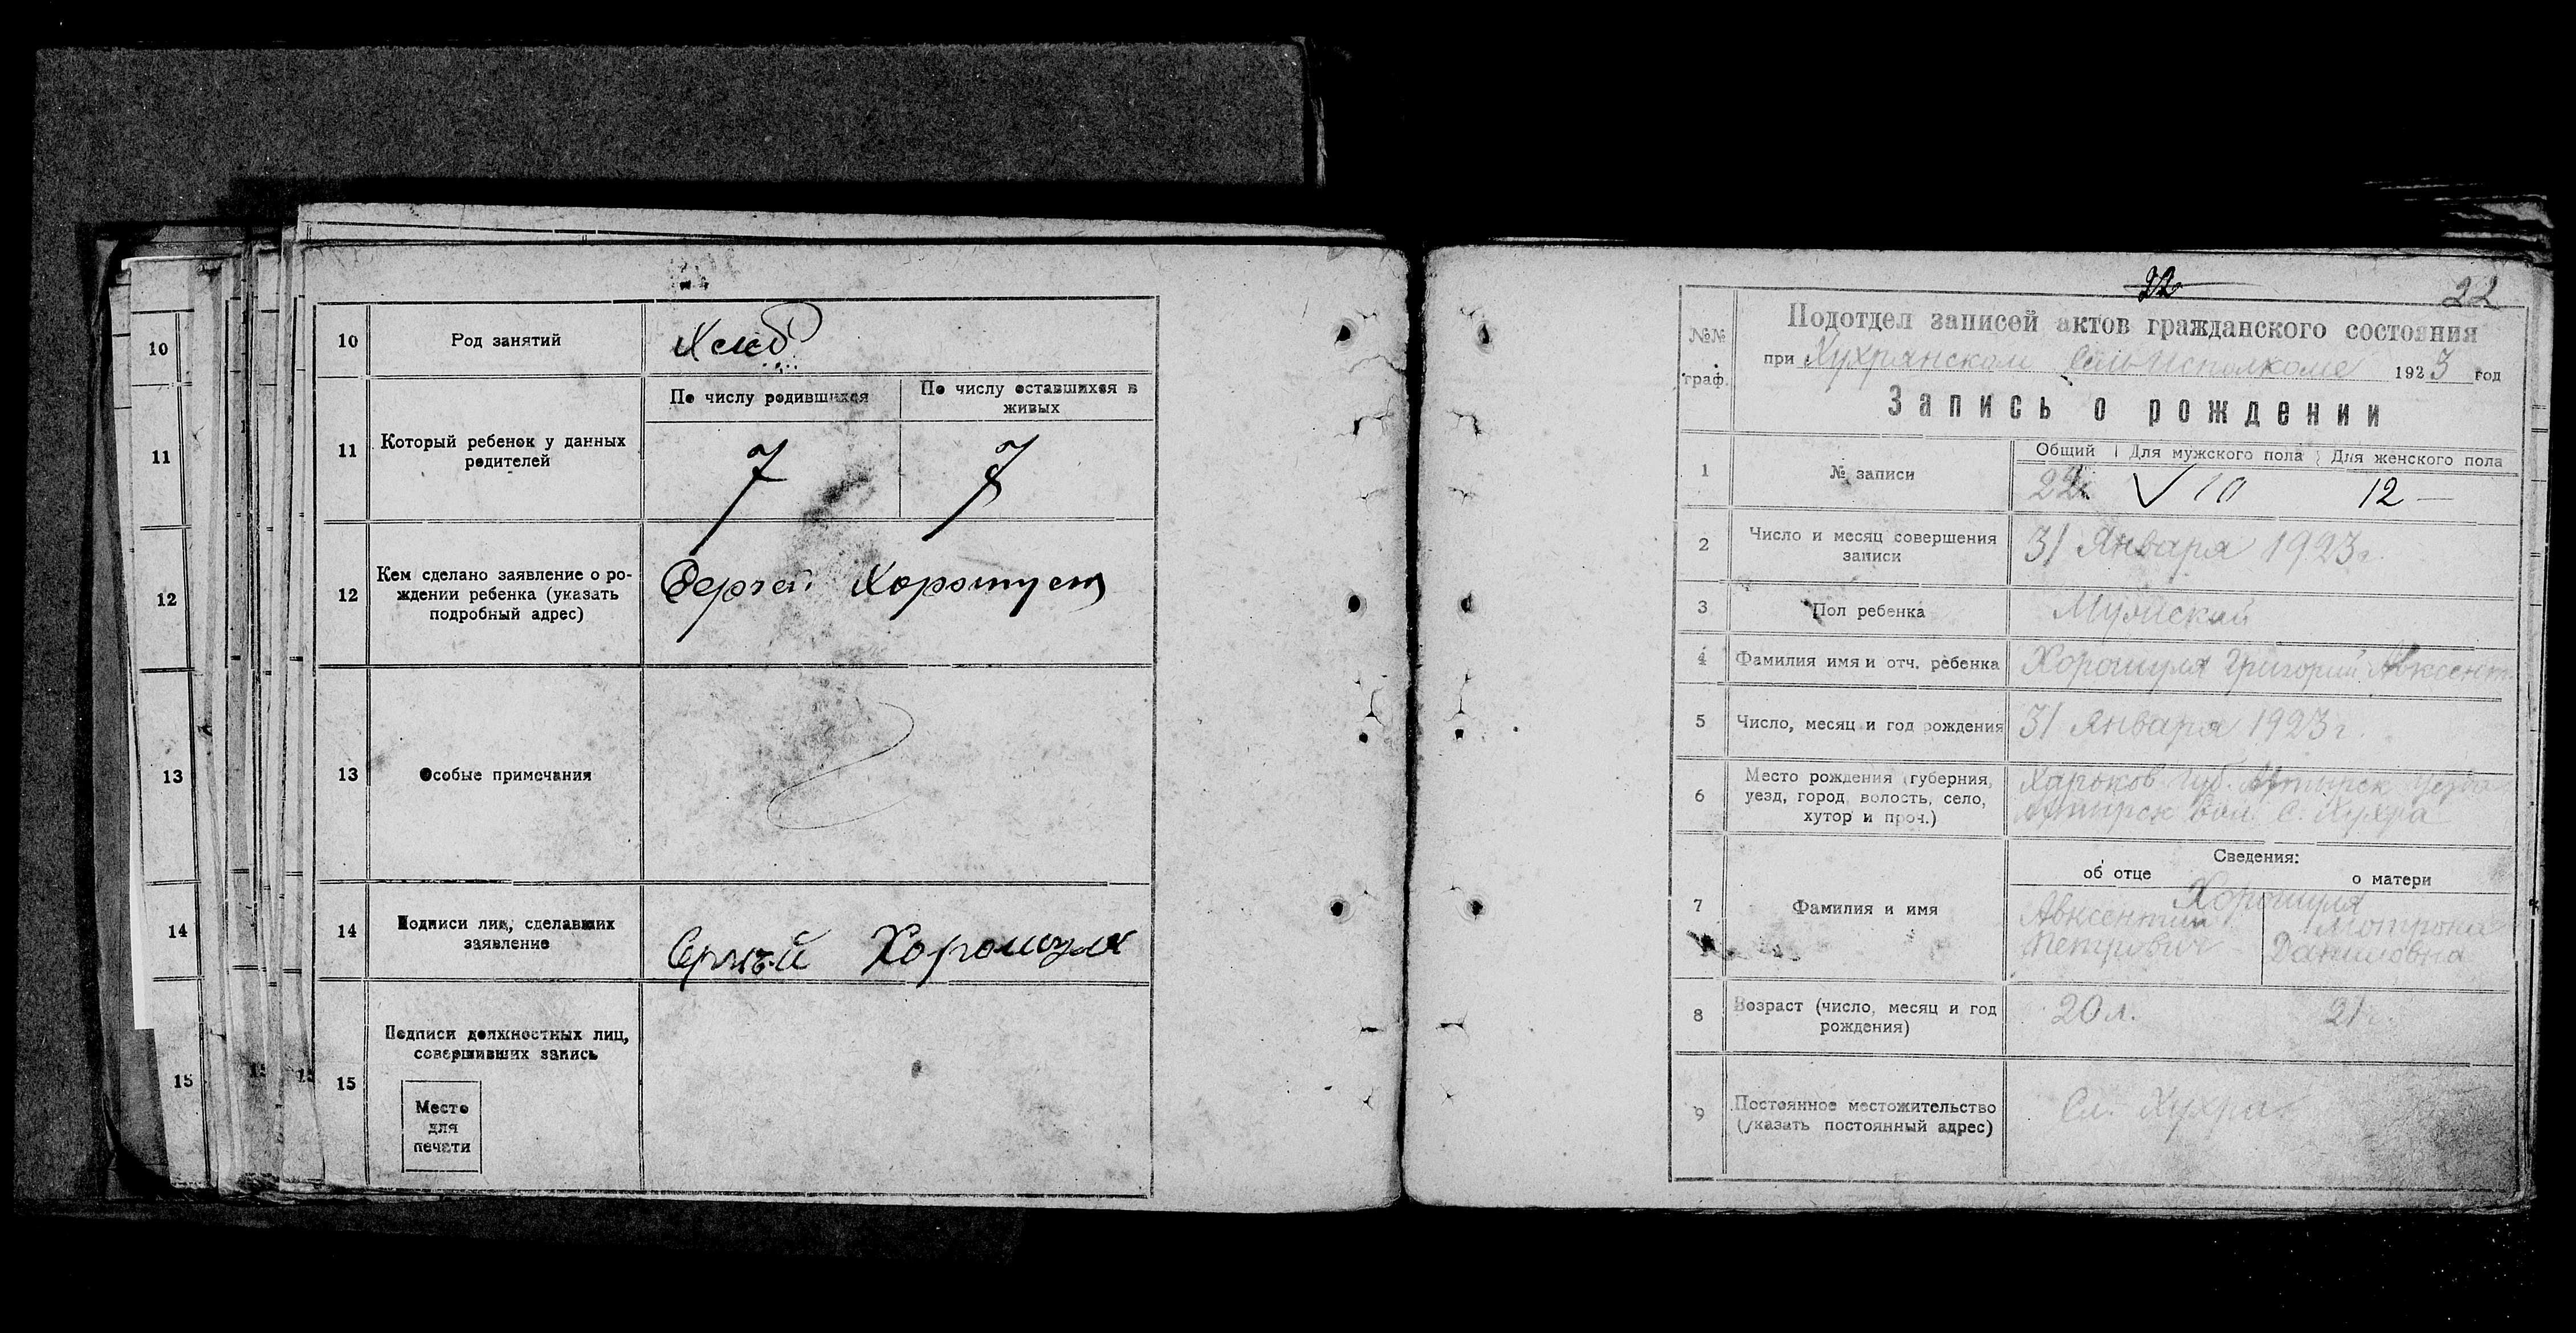 10
11
12
13
14
15
10 Род занятий Хлеб
11 Который ребенок у данных
родителей
По числу родившихся
По числу оставшихся в
живых
7
12 Кем сделано заявление о ро-
ждении ребенка (указать
подробный адрес)
Сергей
13 Особые примечания
14 Подписи лиц, сделавших
заявление
Хорошуля
15 Подписи должностных лиц,
совершивших запись
Место
для
печати
22 22
№№
граф.
Подотдел записей актов гражданского состояния
при Хухрянском Сель-Исполкоме 1923 год
Запись о рождении
1 № записи
Общий Для мужского пола Для женского пола
22 10 12 —
2 Число и месяц совершения
записи
31 Января 1923 г.
3 Пол ребенка Мужской
4 Фамилия имя и отч. ребенка Хорошуля Григорий Авксент.
5 Число, месяц и год рождения 31 Января 1923 г.
6 Место рождения (губерния,
уезд, город, волость, село,
хутор и проч.)
Харьков. Губ. Ахтырск уезда
Ахтырск вол. С. Хухра
Сведения:
об отце о матери
7 Фамилия и имя
Хорошуля
Авксентий Мотрона
Петрович Даниловна
8 Возраст (число, месяц и год
рождения)
20 л. 21 г.
9 Постоянное местожительство
(указать постоянный адрес)
Сл. Хухра